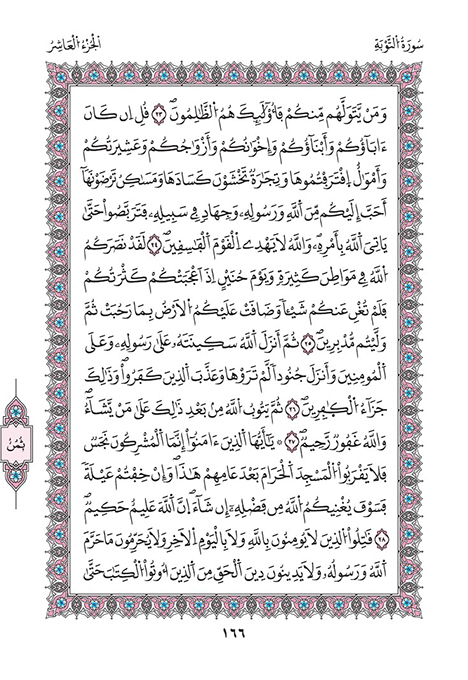 سُورَةُ التَّوْبَةِ
الجُزْءُ العَاشِرُ
وَمَنْ يَّتَوَلَّهُم مِّنكُمْ فَأُوْلَٰٓئِكَ هُمُ اُ۬لظَّٰلِمُونَۖ ٢٣ قُلِ اِن كَانَ
ءَابَآؤُكُمْ وَأَبْنَآؤُكُمْ وَإِخْوَٰنُكُمْ وَأَزْوَٰجُكُمْ وَعَشِيرَتُكُمْ
وَأَمْوَٰلٌ اِ۪قْتَرَفْتُمُوهَا وَتِجَٰرَةٞ تَخْشَوْنَ كَسَادَهَا وَمَسَٰكِنُ تَرْضَوْنَهَآ
أَحَبَّ إِلَيْكُم مِّنَ اَ۬للَّهِ وَرَسُولِهِۦ وَجِهَادٖ فِے سَبِيلِهِۦ فَتَرَبَّصُواْ حَتَّىٰ
يَاتِيَ اَ۬للَّهُ بِأَمْرِهِۦۖ وَاللَّهُ لَا يَهْدِے اِ۬لْقَوْمَ اَ۬لْفَٰسِقِينَۖ ٢٤ لَقَدْ نَصَرَكُمُ
اُ۬للَّهُ فِے مَوَاطِنَ كَثِيرَةٖ وَيَوْمَ حُنَيْنٍ اِذَ اَعْجَبَتْكُمْ كَثْرَتُكُمْ
فَلَمْ تُغْنِ عَنكُمْ شَيْـٔاٗ وَضَاقَتْ عَلَيْكُمُ اُ۬لَارْضُ بِمَا رَحُبَتْ ثُمَّ
وَلَّيْتُم مُّدْبِرِينَۖ ٢٥ ثُمَّ أَنزَلَ اَ۬للَّهُ سَكِينَتَهُۥ عَلَىٰ رَسُولِهِۦ وَعَلَى
اَ۬لْمُومِنِينَ وَأَنزَلَ جُنُوداٗ لَّمْ تَرَوْهَا وَعَذَّبَ اَ۬لذِينَ كَفَرُواْۖ وَذَٰلِكَ
جَزَآءُ اُ۬لْكَٰفِرِينَۖ ٢٦ ثُمَّ يَتُوبُ اُ۬للَّهُ مِنۢ بَعْدِ ذَٰلِكَ عَلَىٰ مَنْ يَّشَآءُۖ
وَاللَّهُ غَفُورٞ رَّحِيمٞۖ ٢٧ ۞ يَٰٓأَيُّهَا اَ۬لذِينَ ءَامَنُوٓاْ إِنَّمَا اَ۬لْمُشْرِكُونَ نَجَسٞ
فَلَا يَقْرَبُواْ اُ۬لْمَسْجِدَ اَ۬لْحَرَامَ بَعْدَ عَامِهِمْ هَٰذَاۖ وَإِنْ خِفْتُمْ عَيْلَةٗ
فَسَوْفَ يُغْنِيكُمُ اُ۬للَّهُ مِن فَضْلِهِۦٓ إِن شَآءَۖ اِنَّ اَ۬للَّهَ عَلِيمٌ حَكِيمٞۖ
٢٨ قَٰتِلُواْ اُ۬لذِينَ لَا يُومِنُونَ بِاللَّهِ وَلَا بِالْيَوْمِ اِ۬لَاخِرِ وَلَا يُحَرِّمُونَ مَا حَرَّمَ
اَ۬للَّهُ وَرَسُولُهُۥ وَلَا يَدِينُونَ دِينَ اَ۬لْحَقِّ مِنَ اَ۬لذِينَ أُوتُواْ اُ۬لْكِتَٰبَ حَتَّىٰ
ثُمُنُ
١٦٦